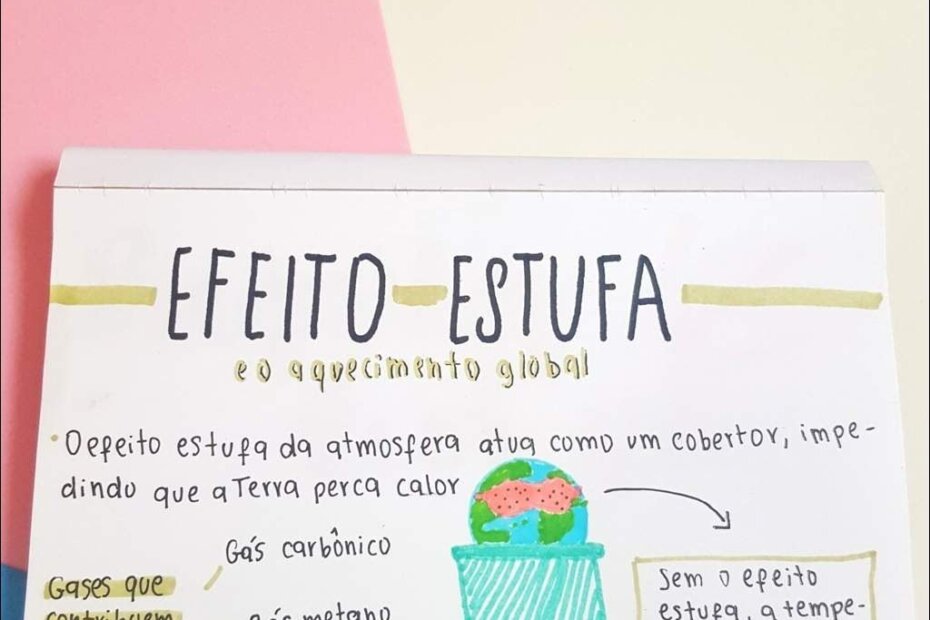 EFEITO ESTUFA
e o aquecimento global
O efeito estufa da atmosfera atua como um cobertor, impe-
dindo que a Terra perca calor
Gás carbônico
Gases que
contribuem
gás metano
Sem o efeito
estufa, a tempe-